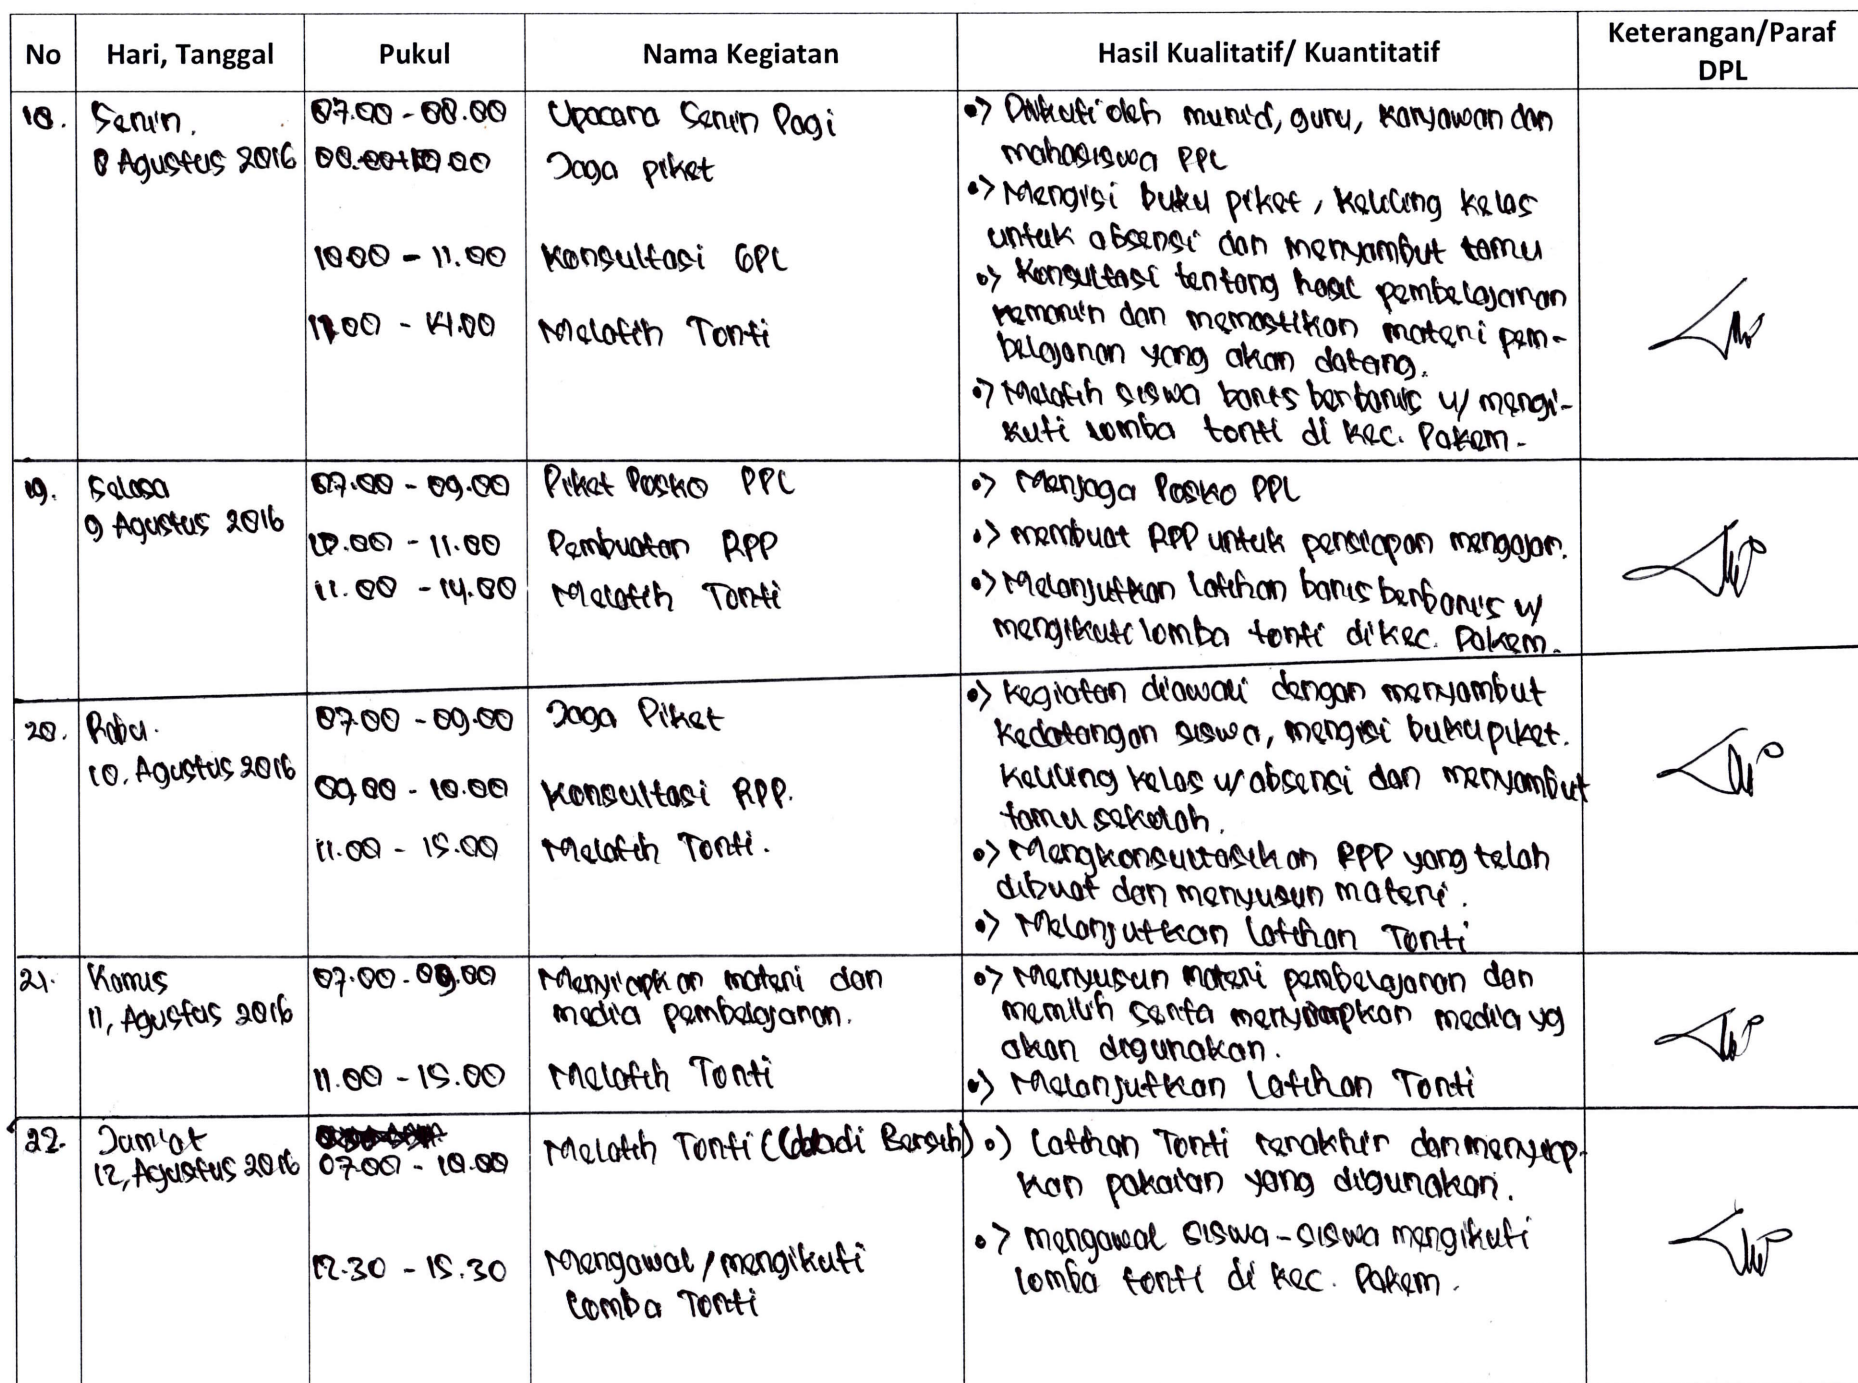 No Hari, Tanggal Pukul Nama Kegiatan Hasil Kualitatif/ Kuantitatif Keterangan/Paraf DPL
18. Senin, 8 Agustus 2016
07.00 - 08.00 Upacara Senin Pagi
Jaga piket
10.00 - 11.00 Konsultasi GPL
11.00 - 14.00 Melatih Tonti
•> Diikuti oleh murid, guru, karyawan dan
mahasiswa PPL
•> Mengisi buku piket, keliling kelas
untuk absensi dan menyambut tamu
•> Konsultasi tentang hasil pembelajaran
kemarin dan memastikan materi pem-
belajaran yang akan datang.
•> Melatih siswa baris berbaris u/ mengi-
kuti lomba tonti di kec. Pakem.
19. Selasa
9 Agustus 2016
07.00 - 09.00 Piket Posko PPL
10.00 - 11.00 Pembuatan RPP
11.00 - 14.00 Melatih Tonti
•> Menjaga Posko PPL
•> membuat RPP untuk persiapan mengajar.
•> Melanjutkan latihan baris berbaris u/
mengikuti lomba tonti di kec. Pakem.
20. Rabu.
10, Agustus 2016
07.00 - 09.00 Jaga Piket
09.00 - 10.00 Konsultasi RPP.
11.00 - 15.00 Melatih Tonti.
•> Kegiatan diawali dengan menyambut
kedatangan siswa, mengisi buku piket.
keliling kelas u/ absensi dan menyambut
tamu sekolah.
•> Mengkonsultasikan RPP yang telah
dibuat dan menyusun materi.
•> Melanjutkan latihan Tonti
21. Kamis
11, Agustus 2016
07.00 - 09.00 Menyiapkan materi dan
media pembelajaran.
11.00 - 15.00 Melatih Tonti
•> Menyusun materi pembelajaran dan
memilih serta menyiapkan media yg
akan digunakan.
•> Melanjutkan Latihan Tonti
22. Jum'at
12, Agustus 2016
07.00 - 10.00 Melatih Tonti (Gladi Bersih)
12.30 - 15.30 Mengawal/mengikuti
Lomba Tonti
•) Latihan Tonti terakhir dan menyiap-
kan pakaian yang digunakan.
•> mengawal siswa-siswa mengikuti
lomba tonti di kec. Pakem.